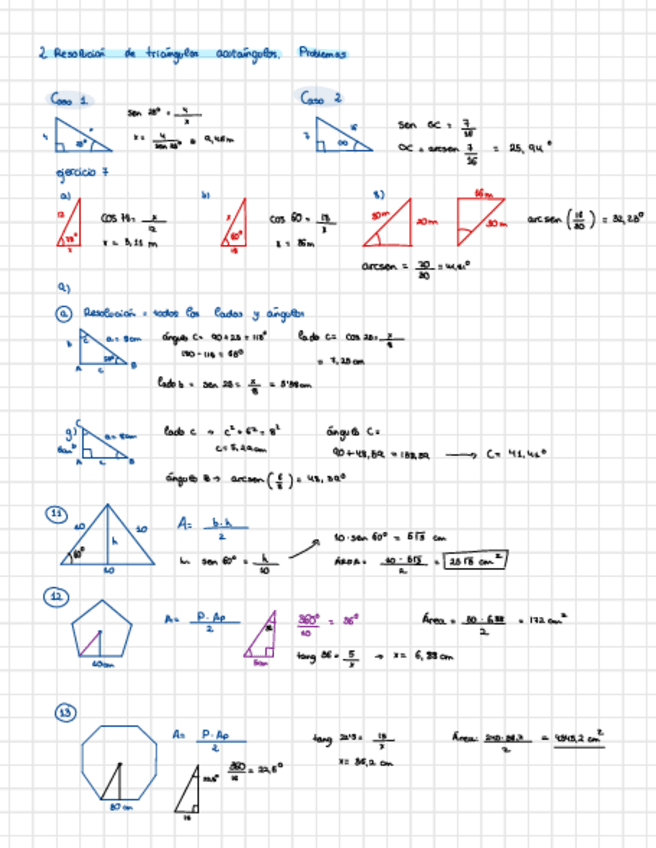 2. Resolución de triángulos acutángulos. Problemas
Caso 1
Caso 2
4
x
sen 25° = 4/x
x = 4/sen 25° =
7
16
sen α = 7/16
α = arcsen 7/16 = 25,94°
ejercicio 7
a)
12
x
cos = x/12
x = m
b)
x
60°
18
cos 60 = 18/x
x = 36m
30m
20m
16m
30m
arcsen (16/30) = 32,23°
arcsen = 20/30 = 41,81°
a) Resolución = todos los lados y ángulos
b
C
a = 8cm
A
c
B
ángulo C = 90 + 25 = 115°
lado c = cos 25 = x/8
= 7,25 cm
lado b = sen 25 = x/8 =
g)
C
6cm
b
a = 8cm
A
c
B
lado c → c² + 6² = 8²
c = 5,29cm
ángulo C =
90 + 48,59 = 138,59 → C = 41,41°
ángulo B → arcsen (6/8) = 48,59°
11
10
10
h
60°
10
A = b·h/2
h sen 60° = h/10
10·sen 60° = 5√3 cm
ÁREA = 10·5√3/2 = 25√3 cm²
12
10cm
A = P·Ap/2
5cm
360°/10 = 36°
tang 36 = 5/x → x = 6,88 cm
Área = 50·6,88/2 = 172 cm²
13
30 cm
A = P·Ap/2
22,5°
15
360/16 = 22,5°
tang 22'5 = 15/x
x = 36,2 cm
Área: 240·36,2/2 = cm²